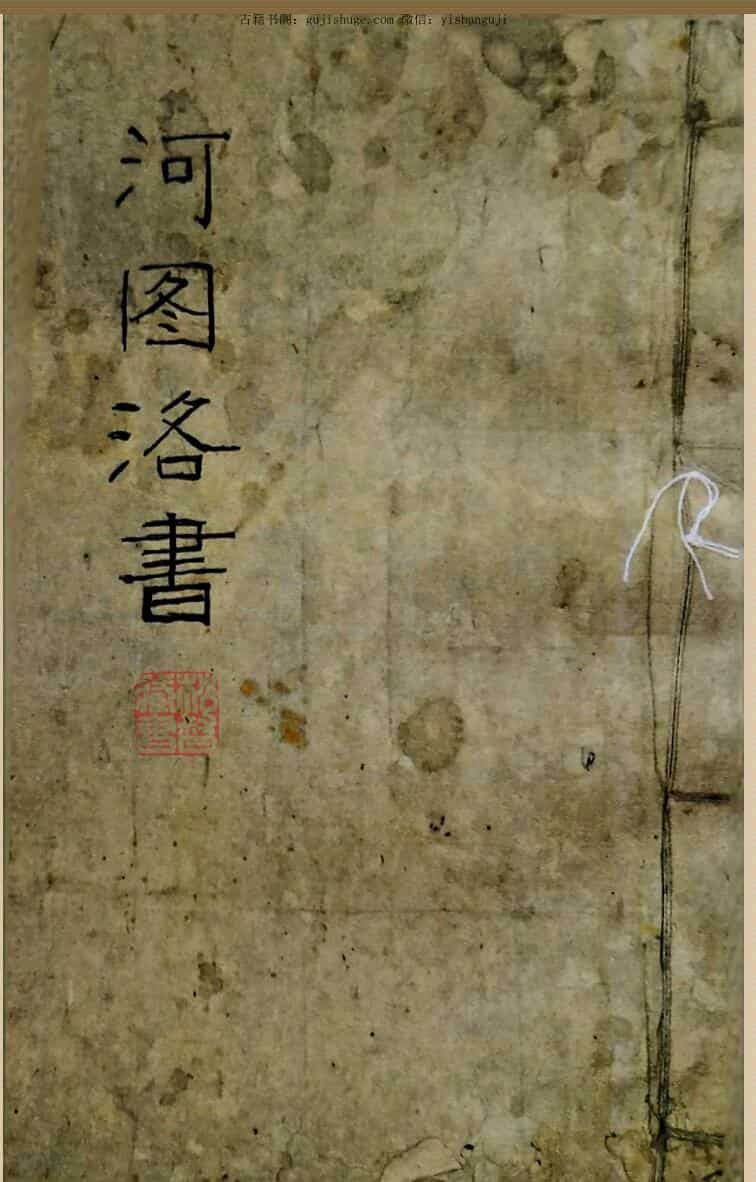 古籍书阁：gujishuge.com 微信：yishanguji
河图洛書